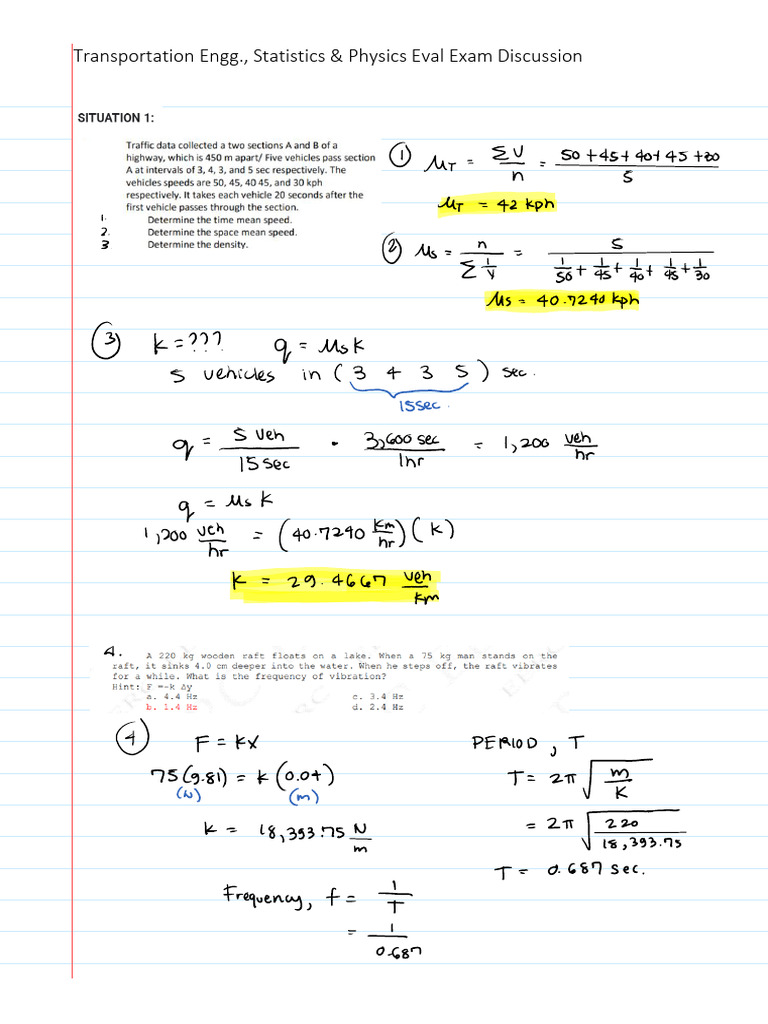 Transportation Engg., Statistics & Physics Eval Exam Discussion
SITUATION 1:
Traffic data collected a two sections A and B of a
highway, which is 450 m apart/ Five vehicles pass section
A at intervals of 3, 4, 3, and 5 sec respectively. The
vehicles speeds are 50, 45, 40 45, and 30 kph
respectively. It takes each vehicle 20 seconds after the
first vehicle passes through the section.
1. Determine the time mean speed.
2. Determine the space mean speed.
3 Determine the density.
① μT = ΣV / n = 50 + 45 + 40 + 45 + 30 / 5
μT = 42 kph
② μs = n / Σ 1/V = 5 / 1/50 + 1/45 + 1/40 + 1/45 + 1/30
μs = 40.7240 kph
③ k = ??? q = μs k
5 vehicles in ( 3 4 3 5 ) sec.
15 sec.
q = 5 veh / 15 sec • 3,600 sec / 1hr = 1,200 veh / hr
q = μs k
1,200 veh / hr = (40.7240 km / hr) ( k )
k = 29.4667 veh / km
4. A 220 kg wooden raft floats on a lake. When a 75 kg man stands on the
raft, it sinks 4.0 cm deeper into the water. When he steps off, the raft vibrates
for a while. What is the frequency of vibration?
Hint: F =-k Δy
a. 4.4 Hz c. 3.4 Hz
b. 1.4 Hz d. 2.4 Hz
④ F = KX
75(9.81) = k (0.04)
(N) (m)
k = 18,393.75 N / m
PERIOD, T
T = 2π √ m / K
= 2π √ 220 / 18,393.75
T = 0.687 sec.
Frequency, f = 1 / T
= 1 / 0.687